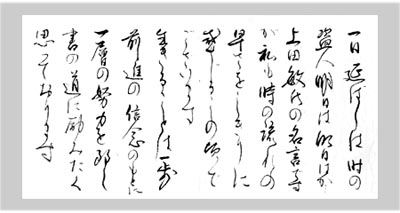 一日延ばしは時の
盗人明日は明日はか
上田敏氏の名言です
が私も時の流れの
早さをしきりに
感じるこの頃で
ございます
生きることは一歩
前進の信念のもとに
一層の努力を致し
書の道に励みたく
思っております